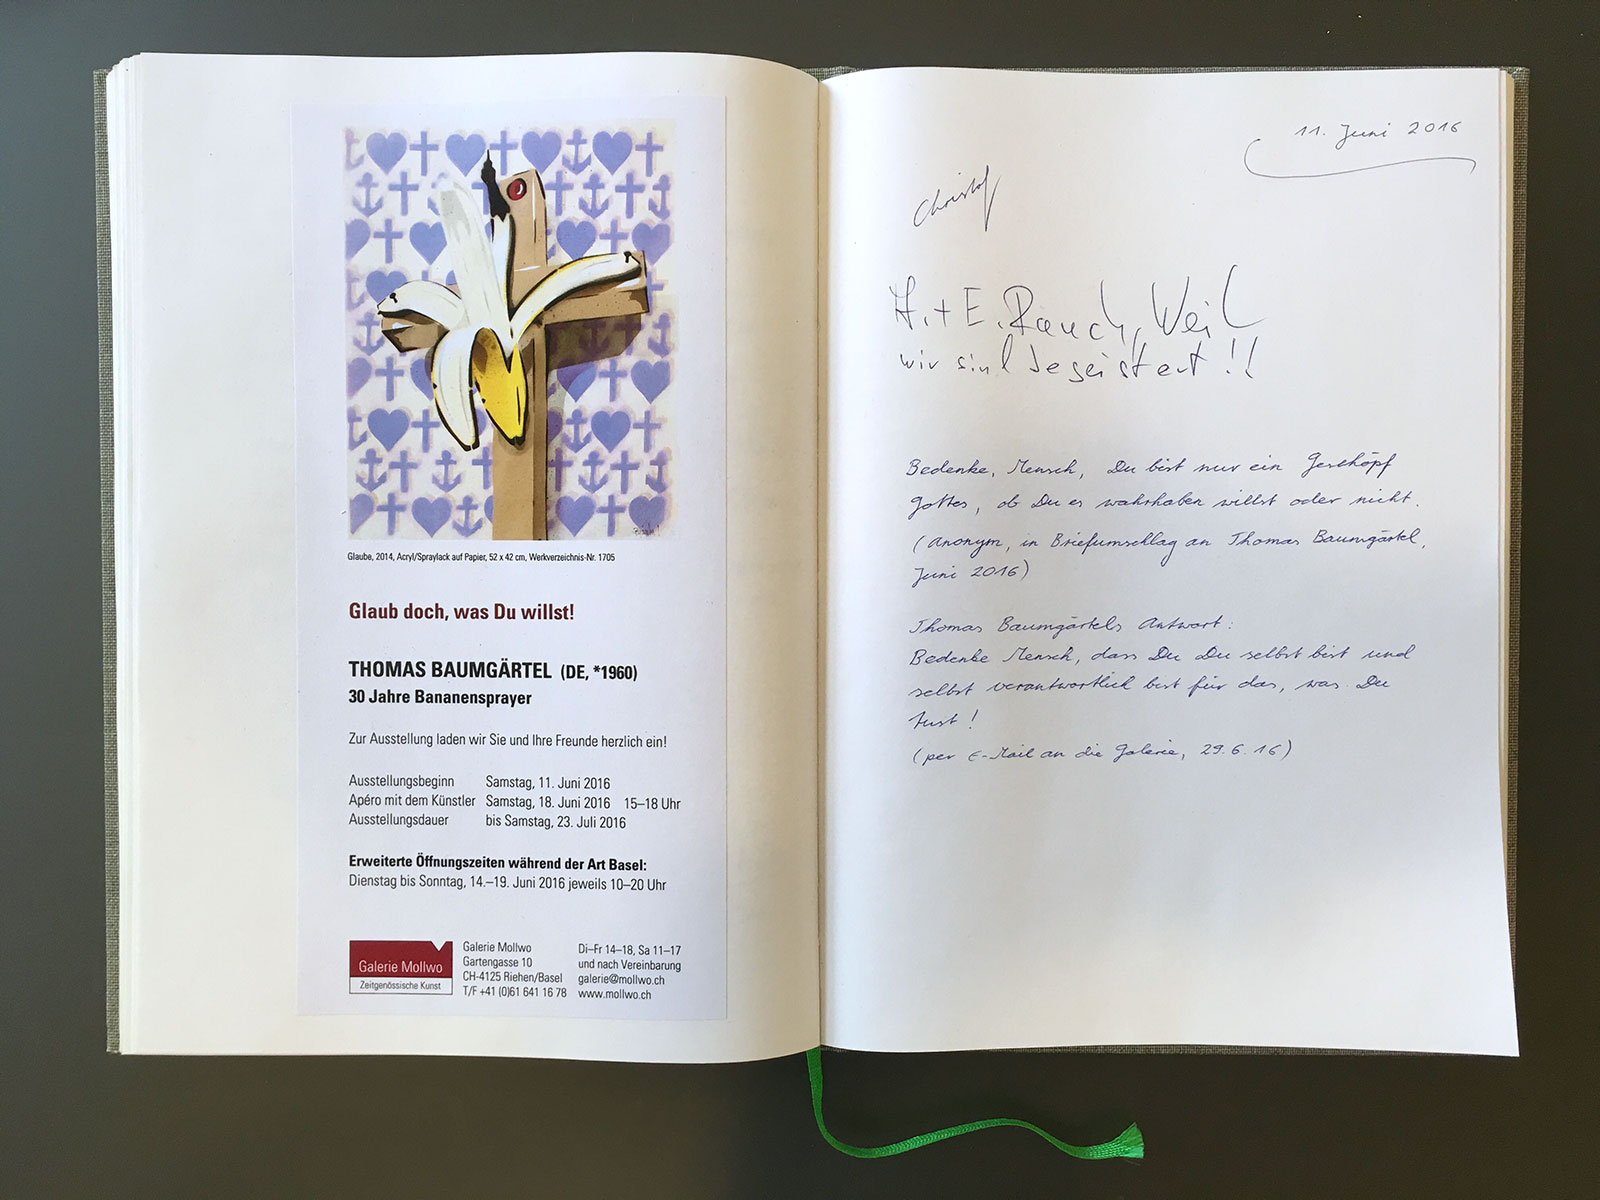 Glaube, 2014, Acryl/Spraylack auf Papier, 52 x 42 cm, Werkverzeichnis-Nr. 1705
Glaub doch, was Du willst!
THOMAS BAUMGÄRTEL (DE, *1960)
30 Jahre Bananensprayer
Zur Ausstellung laden wir Sie und Ihre Freunde herzlich ein!
Ausstellungsbeginn Samstag, 11. Juni 2016
Apéro mit dem Künstler Samstag, 18. Juni 2016 15–18 Uhr
Ausstellungsdauer bis Samstag, 23. Juli 2016
Erweiterte Öffnungszeiten während der Art Basel:
Dienstag bis Sonntag, 14.–19. Juni 2016 jeweils 10–20 Uhr
Galerie Mollwo
Zeitgenössische Kunst
Galerie Mollwo
Gartengasse 10
CH-4125 Riehen/Basel
T/F +41 (0)61 641 16 78
Di–Fr 14–18, Sa 11–17
und nach Vereinbarung
galerie@mollwo.ch
www.mollwo.ch
11. Juni 2016
Christof
H. + E. Rauch, Weil
wir sind begeistert !!
Bedenke, Mensch, Du bist nur ein Geschöpf
Gottes, ob Du es wahrhaben willst oder nicht.
(Anonym, in Briefumschlag an Thomas Baumgärtel,
Juni 2016)
Thomas Baumgärtels Antwort:
Bedenke Mensch, dass Du Du selbst bist und
selbst verantwortlich bist für das, was Du
tust!
(per E-Mail an die Galerie, 29.6.16)